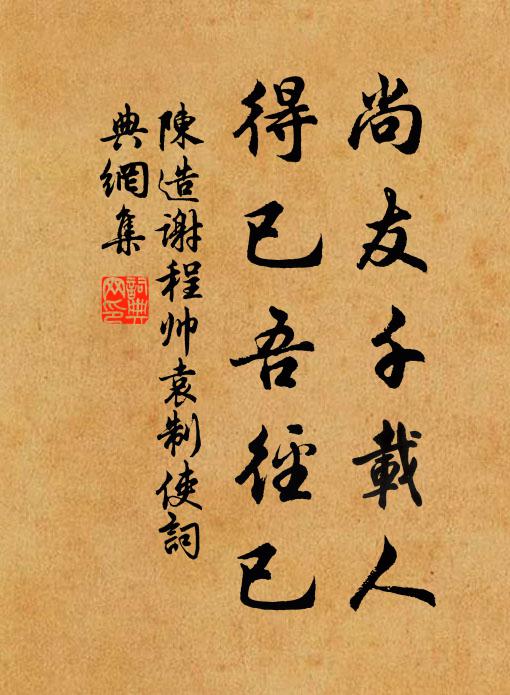 尚友千載人
得已吾徑已
陳造謝程帅袁制使詞
典網集
詞典網印